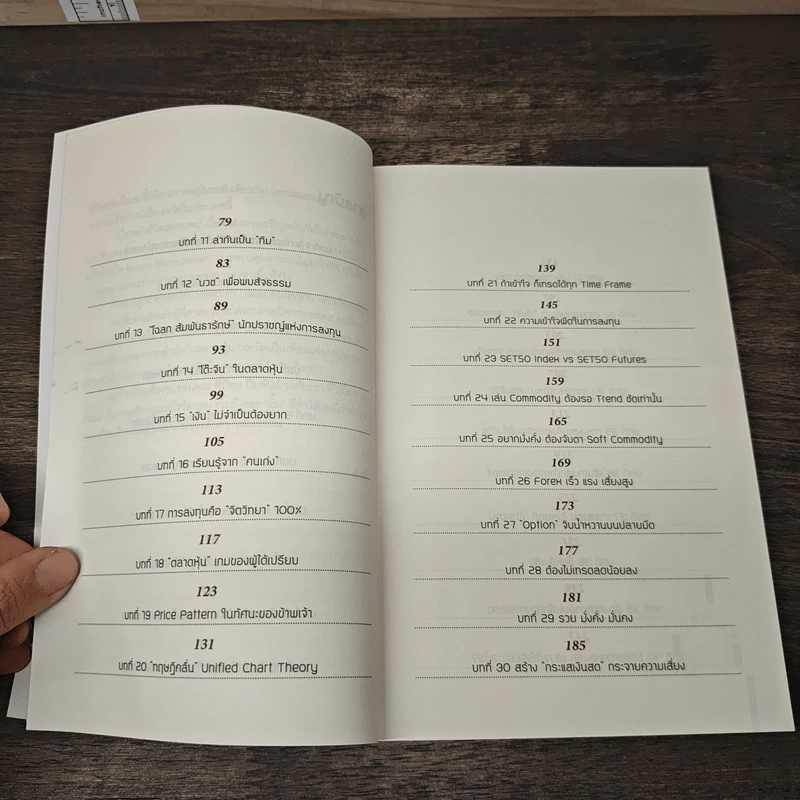 79
บทที่ 11 ล่าทันเป็น "ทีม"
83
บทที่ 12 "บวช" เพื่อพบสัจธรรม
89
บทที่ 13 "โฉลก สัมพันธารักษ์" นักปราชญ์แห่งการลงทุน
93
บทที่ 14 "โต๊ะจีน" ในตลาดหุ้น
99
บทที่ 15 "เงิน" ไม่จำเป็นต้องยาก
105
บทที่ 16 เรียนรู้จาก "คนเก่ง"
113
บทที่ 17 การลงทุนคือ "จิตวิทยา" 100%
117
บทที่ 18 "ตลาดหุ้น" เกมของผู้ได้เปรียบ
123
บทที่ 19 Price Pattern ในทัศนะของข้าพเจ้า
131
บทที่ 20 "ทฤษฎีคลื่น" Unified Chart Theory
139
บทที่ 21 ถ้าเข้าใจ ก็เทรดได้ทุก Time Frame
145
บทที่ 22 ความเข้าใจผิดในการลงทุน
151
บทที่ 23 SET50 Index vs SET50 Futures
159
บทที่ 24 เล่น Commodity ต้องรอ Trend ชัดเท่านั้น
165
บทที่ 25 อยากมั่งคั่ง ต้องจับตา Soft Commodity
169
บทที่ 26 Forex เร็ว แรง เสี่ยงสูง
173
บทที่ 27 "Option" จิบน้ำหวานบนปลายมีด
177
บทที่ 28 ต้องไม่เทรดลดน้อยลง
181
บทที่ 29 รวย มั่งคั่ง มั่นคง
185
บทที่ 30 สร้าง "กระแสเงินสด" กระจายความเสี่ยง